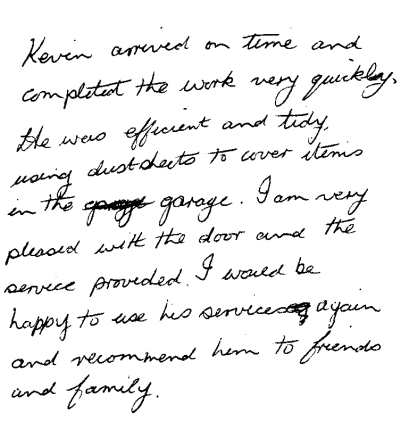 Kevin arrived on time and
completed the work very quickly.
He was efficient and tidy,
using dustsheets to cover items
in the garage. I am very
pleased with the door and the
service provided. I would be
happy to use his services again
and recommend him to friends
and family.